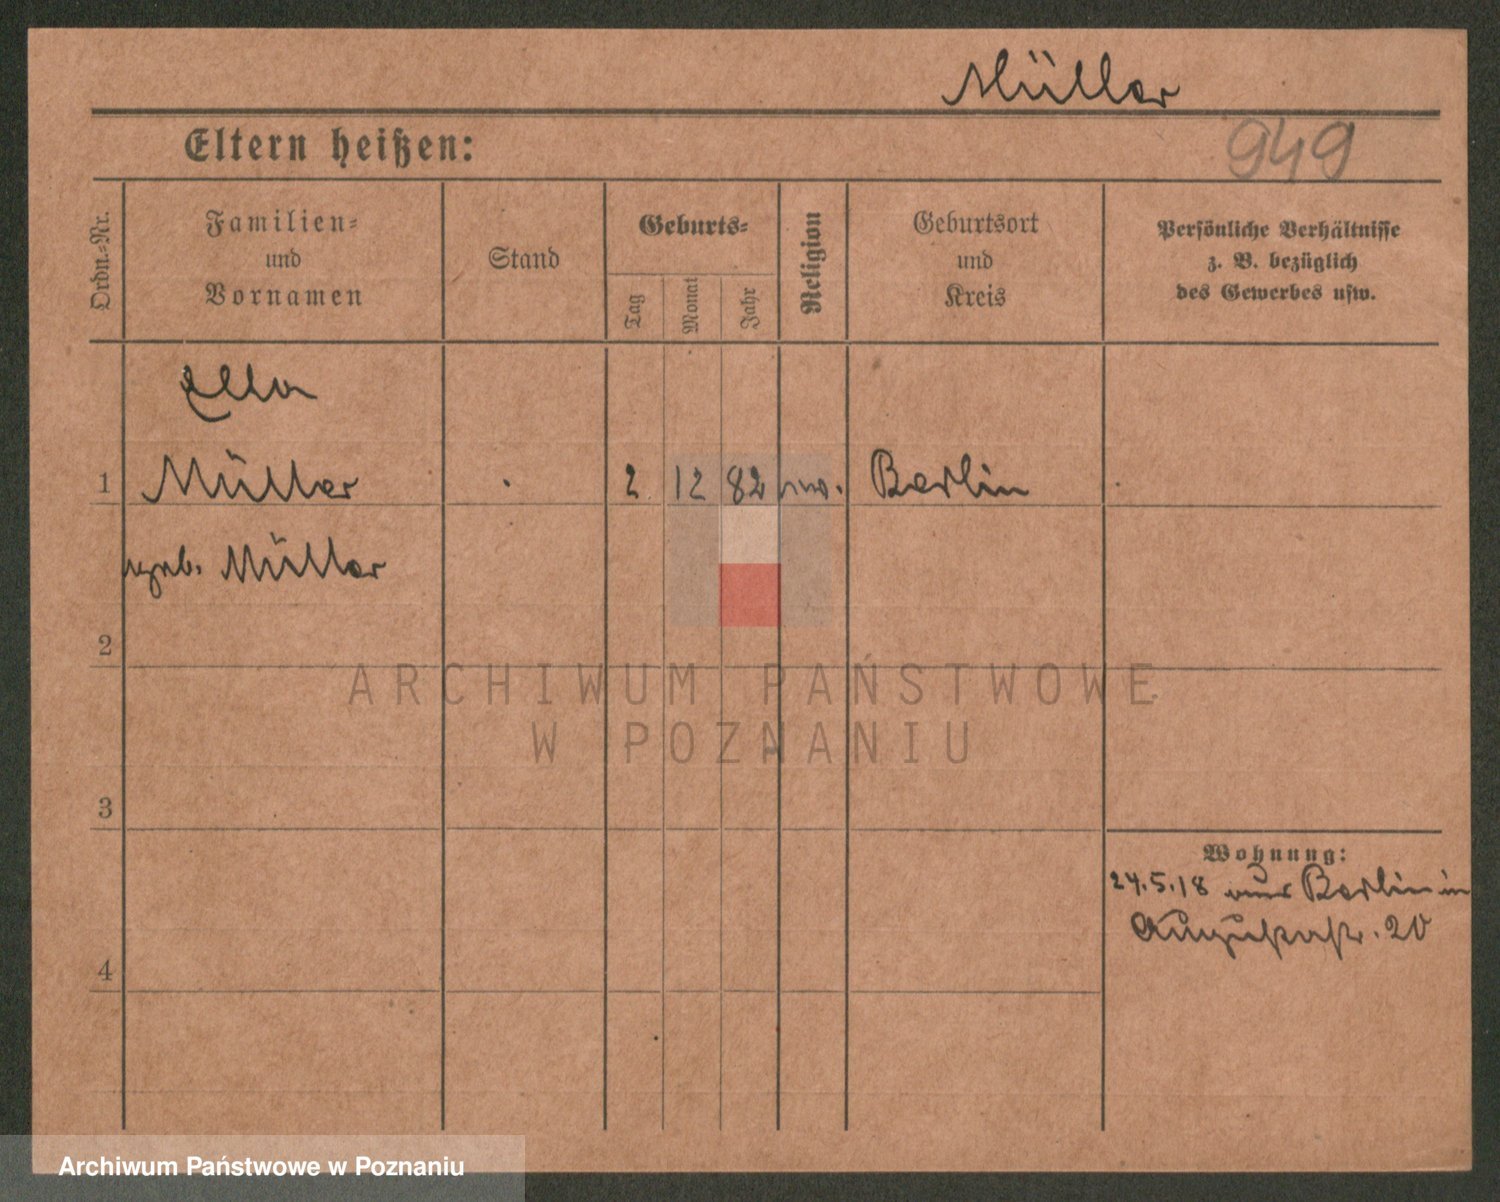 Müller
Eltern heißen:
949
Ordn.-Nr.
Familien-
und
Vornamen
Stand
Geburts-
Tag
Monat
Jahr
Religion
Geburtsort
und
Kreis
Persönliche Verhältnisse
z. B. bezüglich
des Gewerbes usw.
Ella
1 Müller 2 12 82 Berlin
geb. Müller
2
ARCHIWUM PAŃSTWOWE
W POZNANIU
3
Wohnung:
24.5.18 Berlin in
Augustastr. 20
4
Archiwum Państwowe w Poznaniu